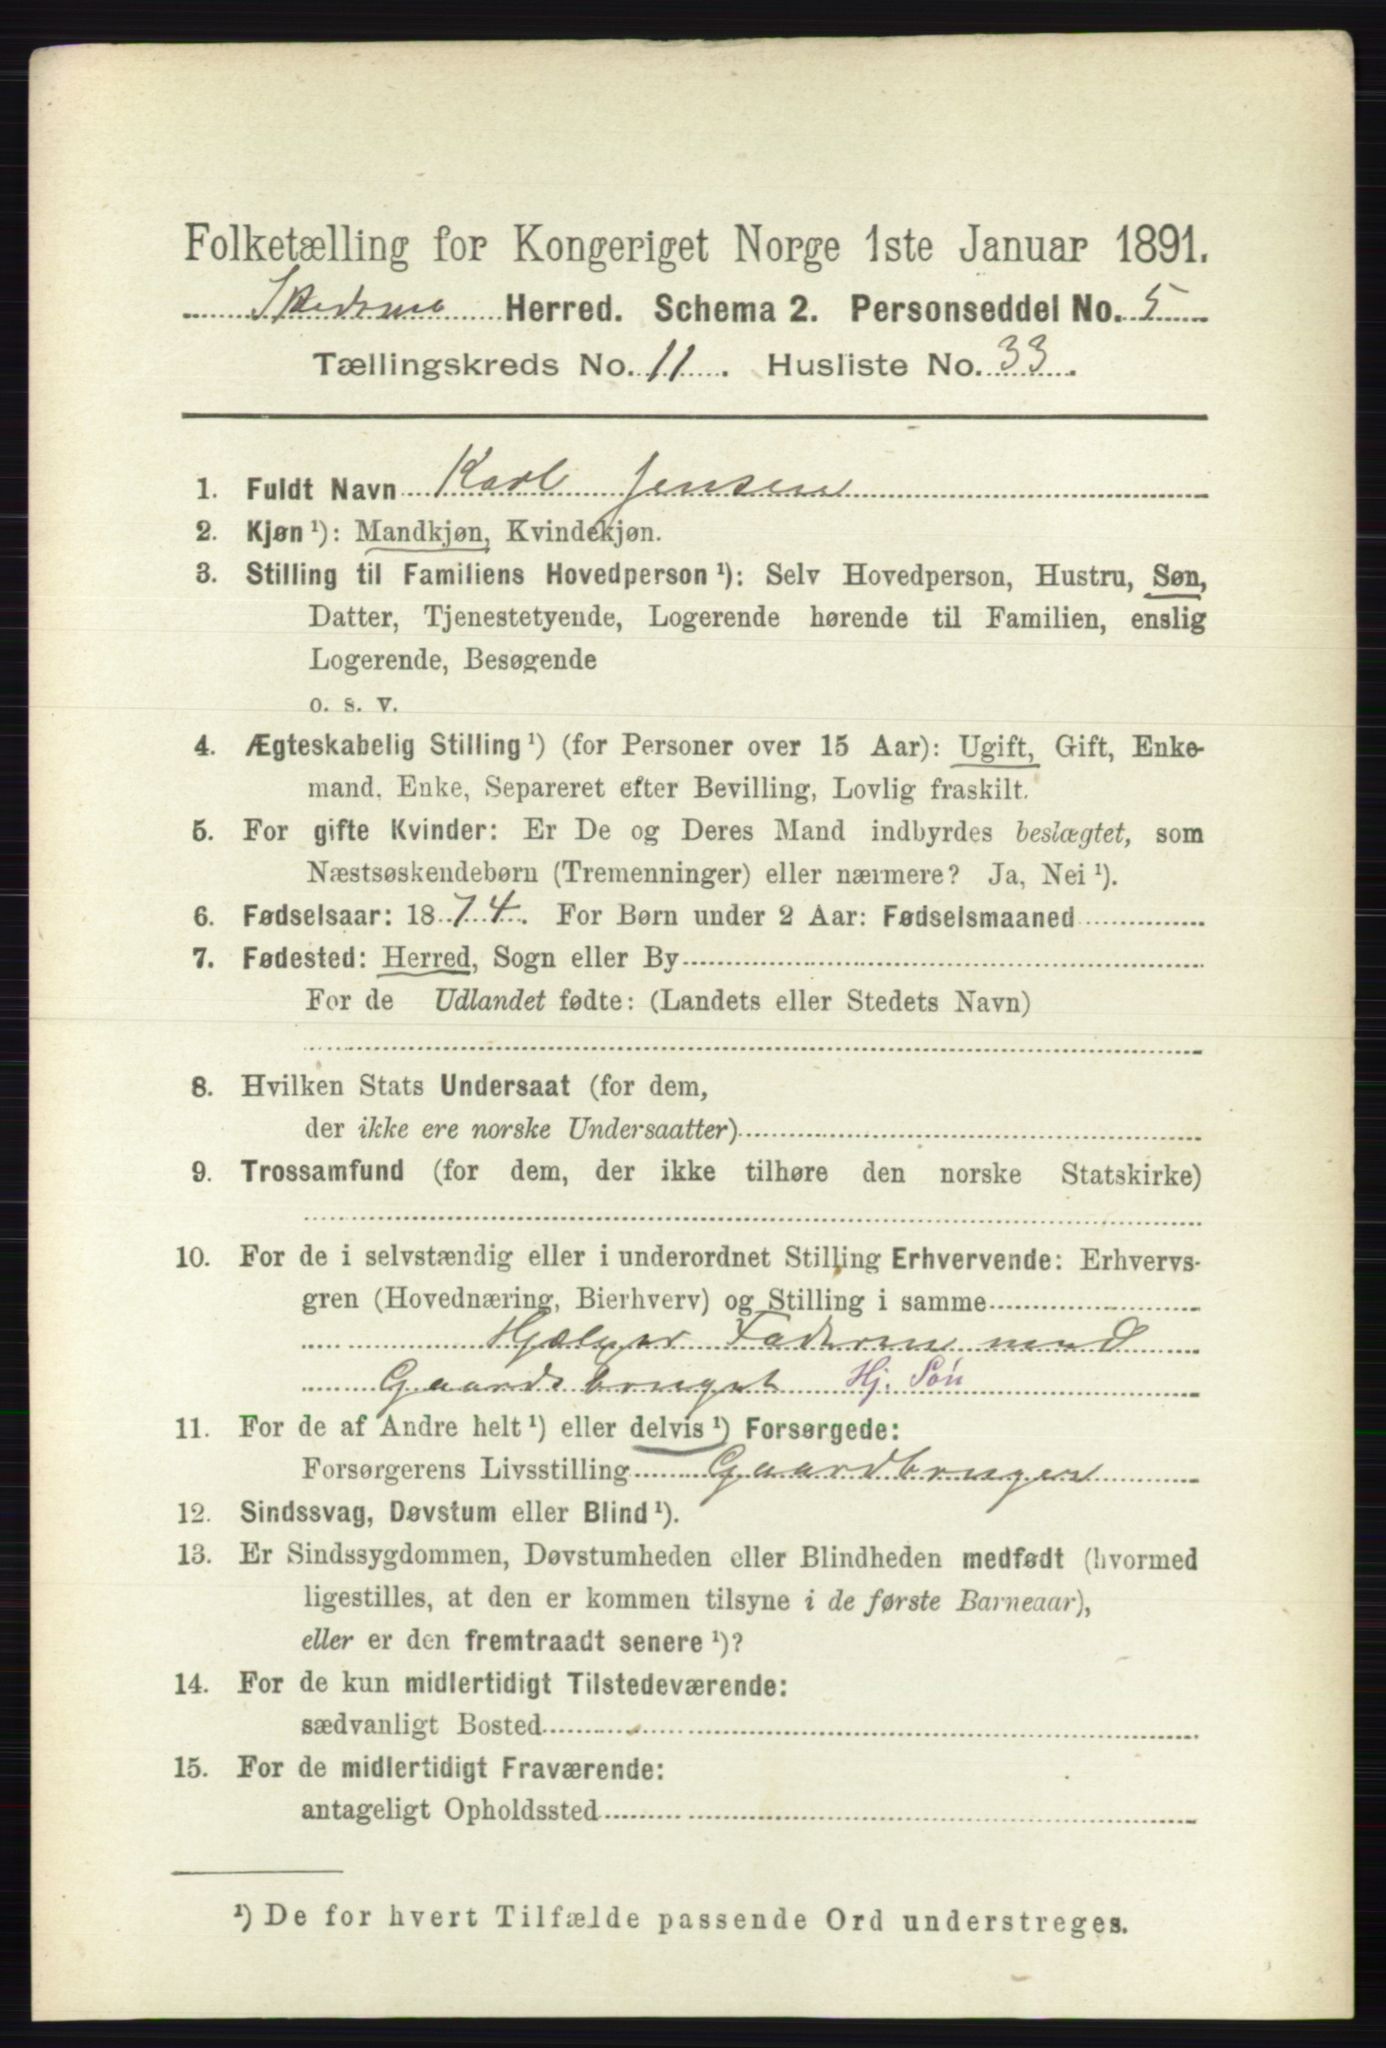 Folketælling for Kongeriget Norge 1ste Januar 1891.
Skedsmo Herred. Schema 2. Personseddel No. 5
Tællingskreds No. 11. Husliste No. 33.
1. Fuldt Navn Karl Jensen
2. Kjøn¹): Mandkjøn, Kvindekjøn.
3. Stilling til Familiens Hovedperson¹): Selv Hovedperson, Hustru, Søn,
Datter, Tjenestetyende, Logerende hørende til Familien, enslig
Logerende, Besøgende
o. s. v.
4. Ægteskabelig Stilling¹) (for Personer over 15 Aar): Ugift, Gift, Enke-
mand, Enke, Separeret efter Bevilling, Lovlig fraskilt.
5. For gifte Kvinder: Er De og Deres Mand indbyrdes beslægtet, som
Næstsøskendebørn (Tremenninger) eller nærmere? Ja, Nei¹).
6. Fødselsaar: 1874. For Børn under 2 Aar: Fødselsmaaned
7. Fødested: Herred, Sogn eller By
For de Udlandet fødte: (Landets eller Stedets Navn)
8. Hvilken Stats Undersaat (for dem,
der ikke ere norske Undersaatter)
9. Trossamfund (for dem, der ikke tilhøre den norske Statskirke)
10. For de i selvstændig eller i underordnet Stilling Erhvervende: Erhvervs-
gren (Hovednæring, Bierhverv) og Stilling i samme
Hjælper Faderen med
Gaardsbruget Hj. Søn
11. For de af Andre helt¹) eller delvis¹) Forsørgede:
Forsørgerens Livsstilling Gaardbruger
12. Sindssvag, Døvstum eller Blind¹).
13. Er Sindssygdommen, Døvstumheden eller Blindheden medfødt (hvormed
ligestilles, at den er kommen tilsyne i de første Barneaar),
eller er den fremtraadt senere¹)?
14. For de kun midlertidigt Tilstedeværende:
sædvanligt Bosted
15. For de midlertidigt Fraværende:
antageligt Opholdssted
¹) De for hvert Tilfælde passende Ord understreges.